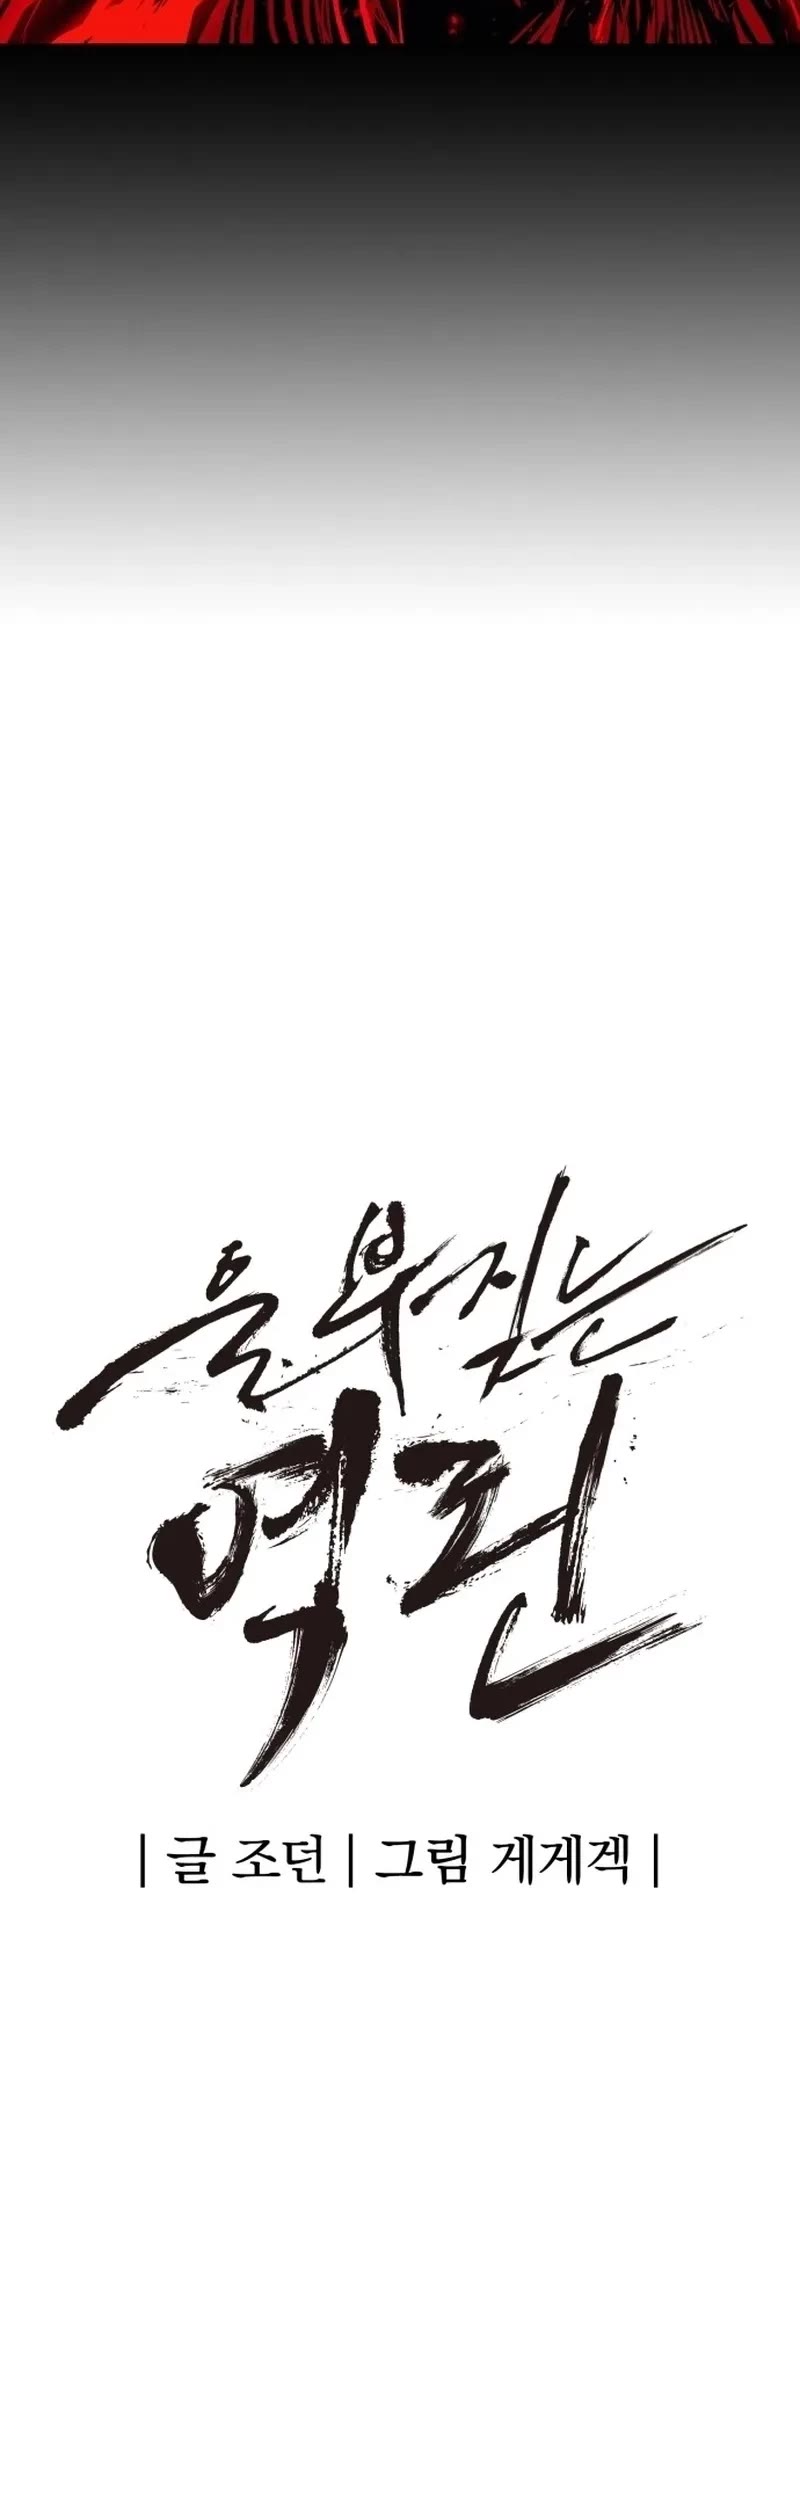 울부짖는
역린
| 글 조던 | 그림 게게겍 |